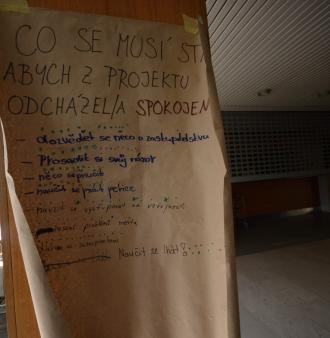 CO SE MUSÍ ST
ABYCH Z PROJEKTU
ODCHÁZEL/A SPOKOJEN
- dozvědět se něco o zastupitelstvu
- Prosadit si svůj názor
- něco se naučit
- naučit se psát petice
naučit se vystupovat na veřejnosti
Naučit se lhát!